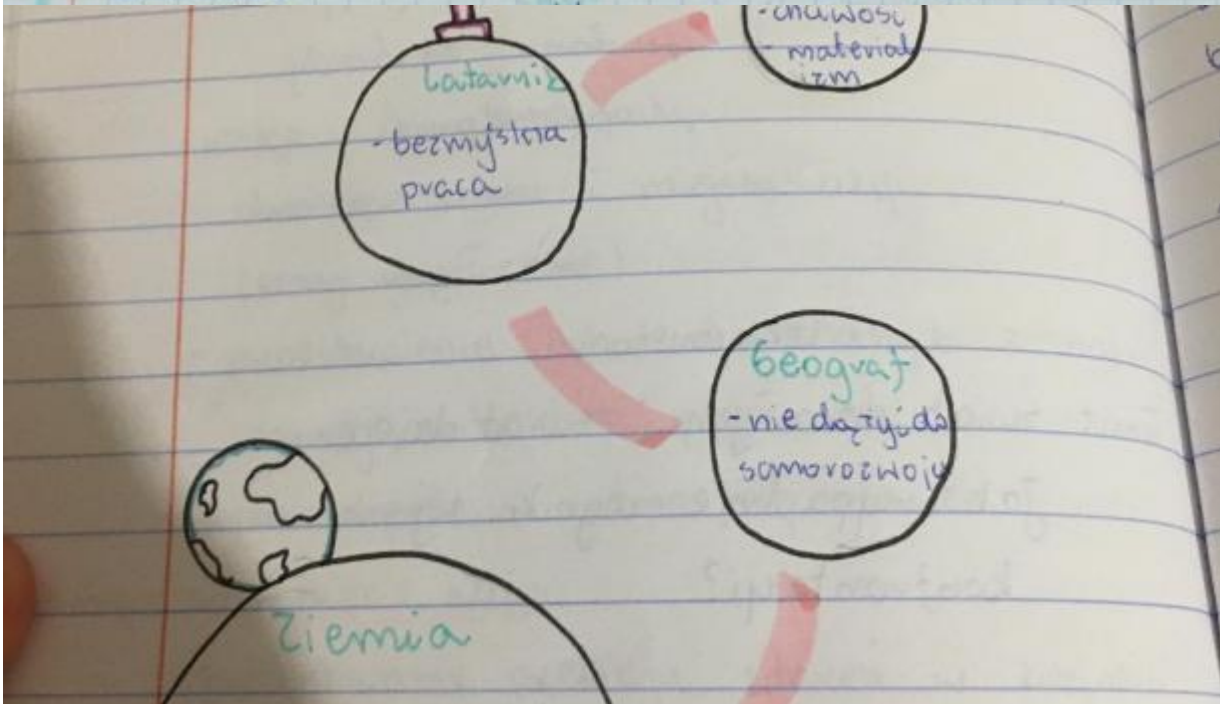 - chciwość
- material
izm
Latarnik
- bezmyślna
praca
Geograf
- nie dąży do
samorozwoju
Ziemia